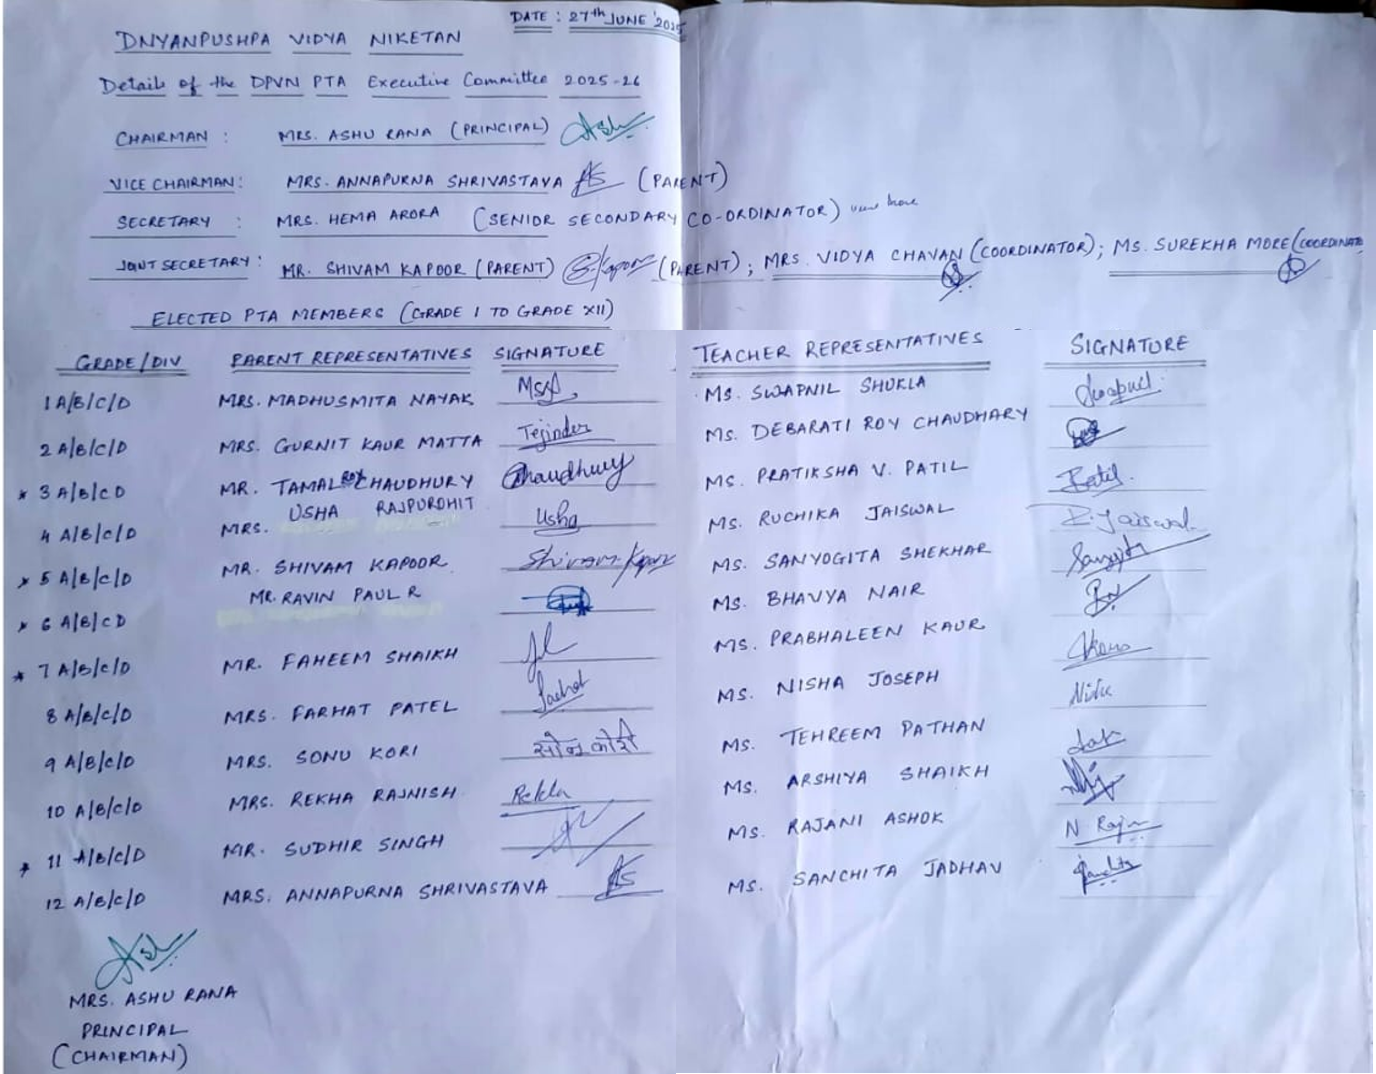 DATE : 27th JUNE '2025
DNYANPUSHPA VIDYA NIKETAN
Details of the DPVN PTA Executive Committee 2025-26
CHAIRMAN : MRS. ASHU RANA (PRINCIPAL)
VICE CHAIRMAN: MRS. ANNAPURNA SHRIVASTAVA AS (PARENT)
SECRETARY : MRS. HEMA ARORA (SENIOR SECONDARY CO-ORDINATOR)
JOINT SECRETARY: MR. SHIVAM KAPOOR (PARENT) S.Kapoor (PARENT) ; MRS. VIDYA CHAVAN (COORDINATOR); MS. SUREKHA MORE (COORDINATO
ELECTED PTA MEMBERS (GRADE I TO GRADE XII)
GRADE/DIV PARENT REPRESENTATIVES SIGNATURE TEACHER REPRESENTATIVES SIGNATURE
1 A/B/C/D MRS. MADHUSMITA NAYAK MS. SWAPNIL SHUKLA Swapnil
2 A/B/C/D MRS. GURNIT KAUR MATTA Tejinder MS. DEBARATI ROY CHAUDHARY
* 3 A/B/C D MR. TAMAL ROY CHAUDHURY Chaudhury MS. PRATIKSHA V. PATIL Patil
4 A/B/C/D MRS. USHA RAJPUROHIT Usha MS. RUCHIKA JAISWAL R.Jaiswal
* 5 A/B/C/D MR. SHIVAM KAPOOR Shivam Kapoor MS. SANYOGITA SHEKHAR
* 6 A/B/C D MR. RAVIN PAUL R MS. BHAVYA NAIR
* 7 A/B/C/D MR. FAHEEM SHAIKH MS. PRABHALEEN KAUR
8 A/B/C/D MRS. FARHAT PATEL MS. NISHA JOSEPH
9 A/B/C/D MRS. SONU KORI सोनू कोरी MS. TEHREEM PATHAN
10 A/B/C/D MRS. REKHA RAJNISH Rekha MS. ARSHIYA SHAIKH
* 11 A/B/C/D MR. SUDHIR SINGH MS. RAJANI ASHOK
12 A/B/C/D MRS. ANNAPURNA SHRIVASTAVA AS MS. SANCHITA JADHAV
MRS. ASHU RANA
PRINCIPAL
(CHAIRMAN)